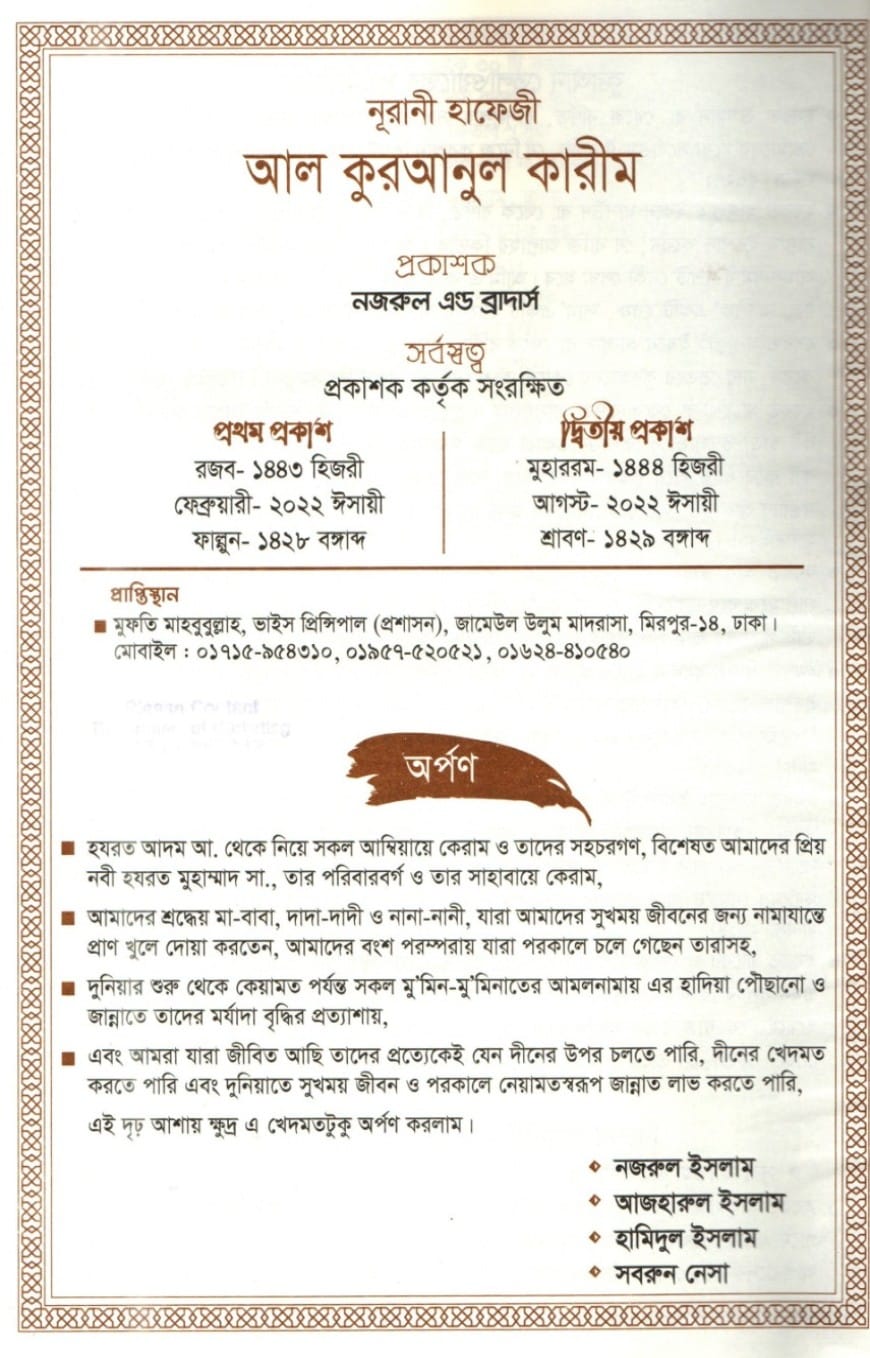 নূরানী হাফেজী
আল কুরআনুল কারীম
প্রকাশক
নজরুল এন্ড ব্রাদার্স
সর্বস্বত্ব
প্রকাশক কর্তৃক সংরক্ষিত
প্রথম প্রকাশ
রজব- ১৪৪৩ হিজরী
ফেব্রুয়ারী- ২০২২ ঈসায়ী
ফাল্গুন- ১৪২৮ বঙ্গাব্দ
দ্বিতীয় প্রকাশ
মুহাররম- ১৪৪৪ হিজরী
আগস্ট- ২০২২ ঈসায়ী
শ্রাবণ- ১৪২৯ বঙ্গাব্দ
প্রাপ্তিস্থান
■ মুফতি মাহবুবুল্লাহ, ভাইস প্রিন্সিপাল (প্রশাসন), জামেউল উলুম মাদরাসা, মিরপুর-১৪, ঢাকা।
মোবাইল : ০১৭১৫-৯৫৪৩১০, ০১৯৫৭-৫২০৫২১, ০১৬২৪-৪১০৫৪০
অর্পণ
■ হযরত আদম আ. থেকে নিয়ে সকল আম্বিয়ায়ে কেরাম ও তাদের সহচরগণ, বিশেষত আমাদের প্রিয়
নবী হযরত মুহাম্মাদ সা., তার পরিবারবর্গ ও তার সাহাবায়ে কেরাম,
■ আমাদের শ্রদ্ধেয় মা-বাবা, দাদা-দাদী ও নানা-নানী, যারা আমাদের সুখময় জীবনের জন্য নামাযান্তে
প্রাণ খুলে দোয়া করতেন, আমাদের বংশ পরম্পরায় যারা পরকালে চলে গেছেন তারাসহ,
■ দুনিয়ার শুরু থেকে কেয়ামত পর্যন্ত সকল মু'মিন-মু'মিনাতের আমলনামায় এর হাদিয়া পৌছানো ও
জান্নাতে তাদের মর্যাদা বৃদ্ধির প্রত্যাশায়,
■ এবং আমরা যারা জীবিত আছি তাদের প্রত্যেকেই যেন দীনের উপর চলতে পারি, দীনের খেদমত
করতে পারি এবং দুনিয়াতে সুখময় জীবন ও পরকালে নেয়ামতস্বরূপ জান্নাত লাভ করতে পারি,
এই দৃঢ় আশায় ক্ষুদ্র এ খেদমতটুকু অর্পণ করলাম।
নজরুল ইসলাম
আজহারুল ইসলাম
হামিদুল ইসলাম
সবরুন নেসা